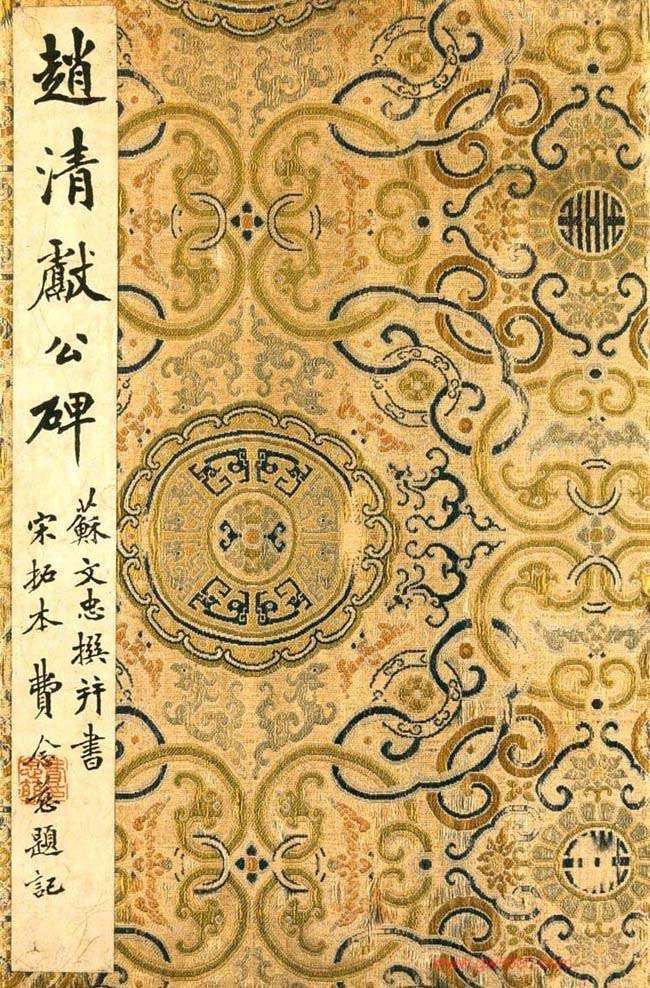 趙清獻公碑
蘇文忠撰并書
宋拓本 費念慈題記